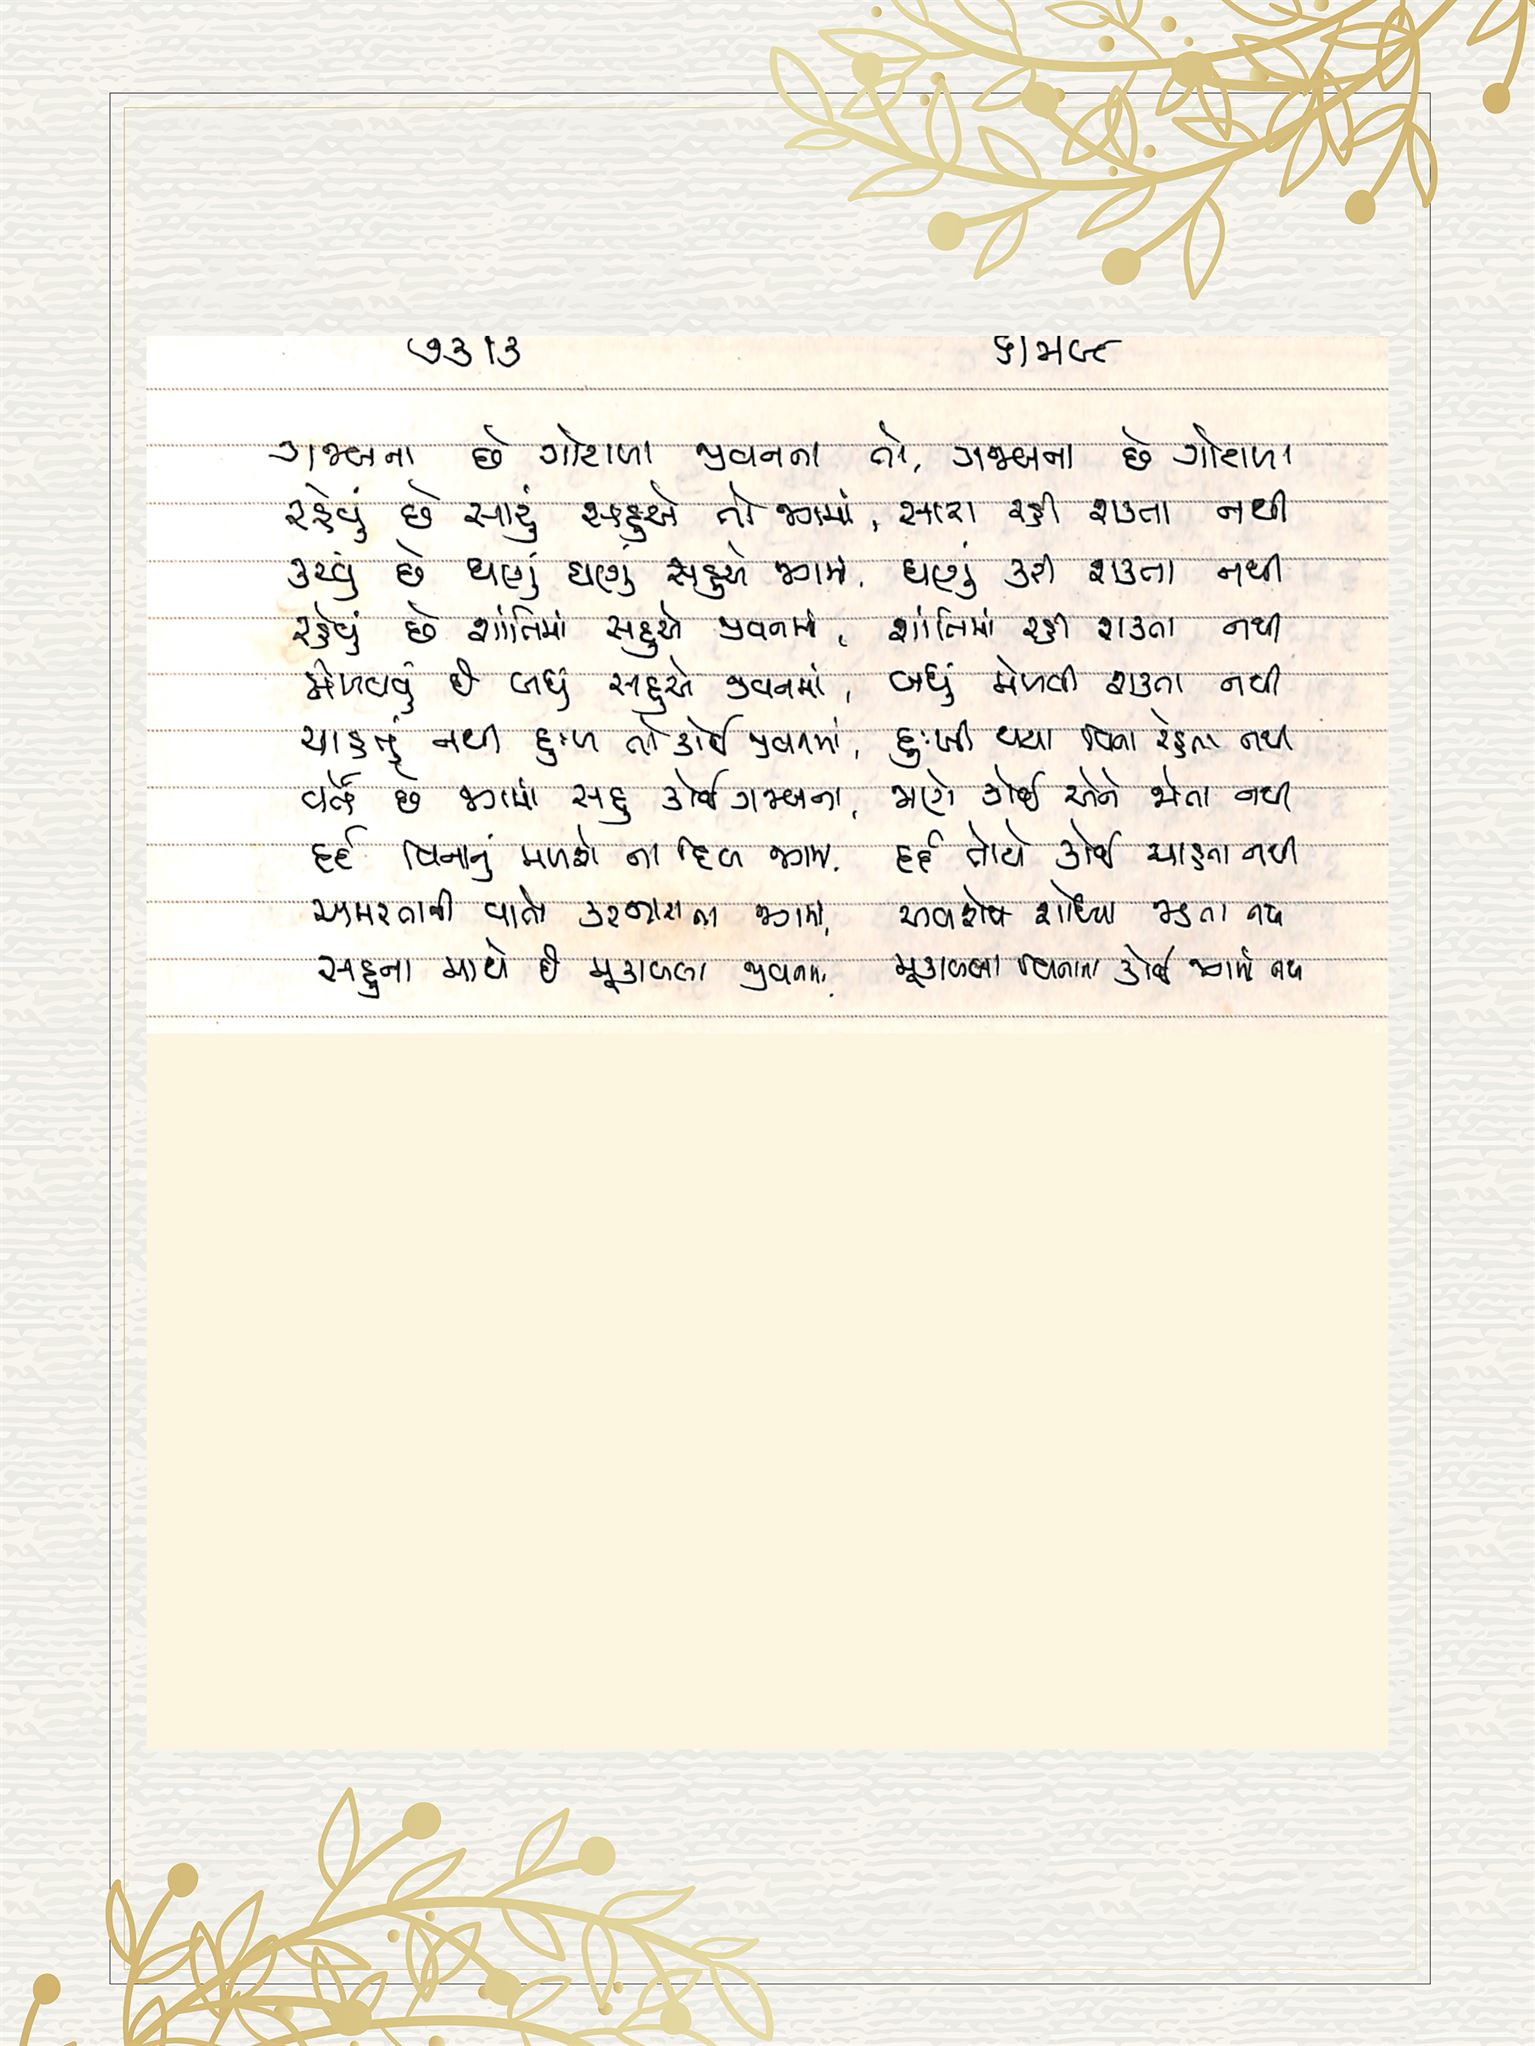 ૭૩૧૩
ગજબના છે ગોટાળા જીવનના તો, ગજબના છે ગોટાળા
રહેવું છે સારું સહુએ તો જગમાં, સારા રહી શકતા નથી
કરવું છે ઘણું ઘણું સહુએ જગમાં, ઘણું કરી શકતા નથી
રહેવું છે શાંતિમાં સહુએ જીવનમાં, શાંતિમાં રહી શકતા નથી
મેળવવું છે બધું સહુએ જીવનમાં, બધું મેળવી શકતા નથી
ચાહતું નથી દુઃખ તો કોઈ જીવનમાં, દુઃખી થયા વિના રહેતા નથી
વર્તે છે જગમાં સહુ કોઈ ગજબના, જાણે કોઈ એને જોતા નથી
દર્દ વિનાનું મળશે ના દિલ જગમાં, દર્દ તોયે કોઈ ચાહતા નથી
અમરતાની વાતો કરનારાના જગમાં, અવશેષ શોધ્યા જડતા નથી
સહુના માથે છે મૂંઝવણો જીવનમાં, વિનાના કોઈ જગમાં નથી